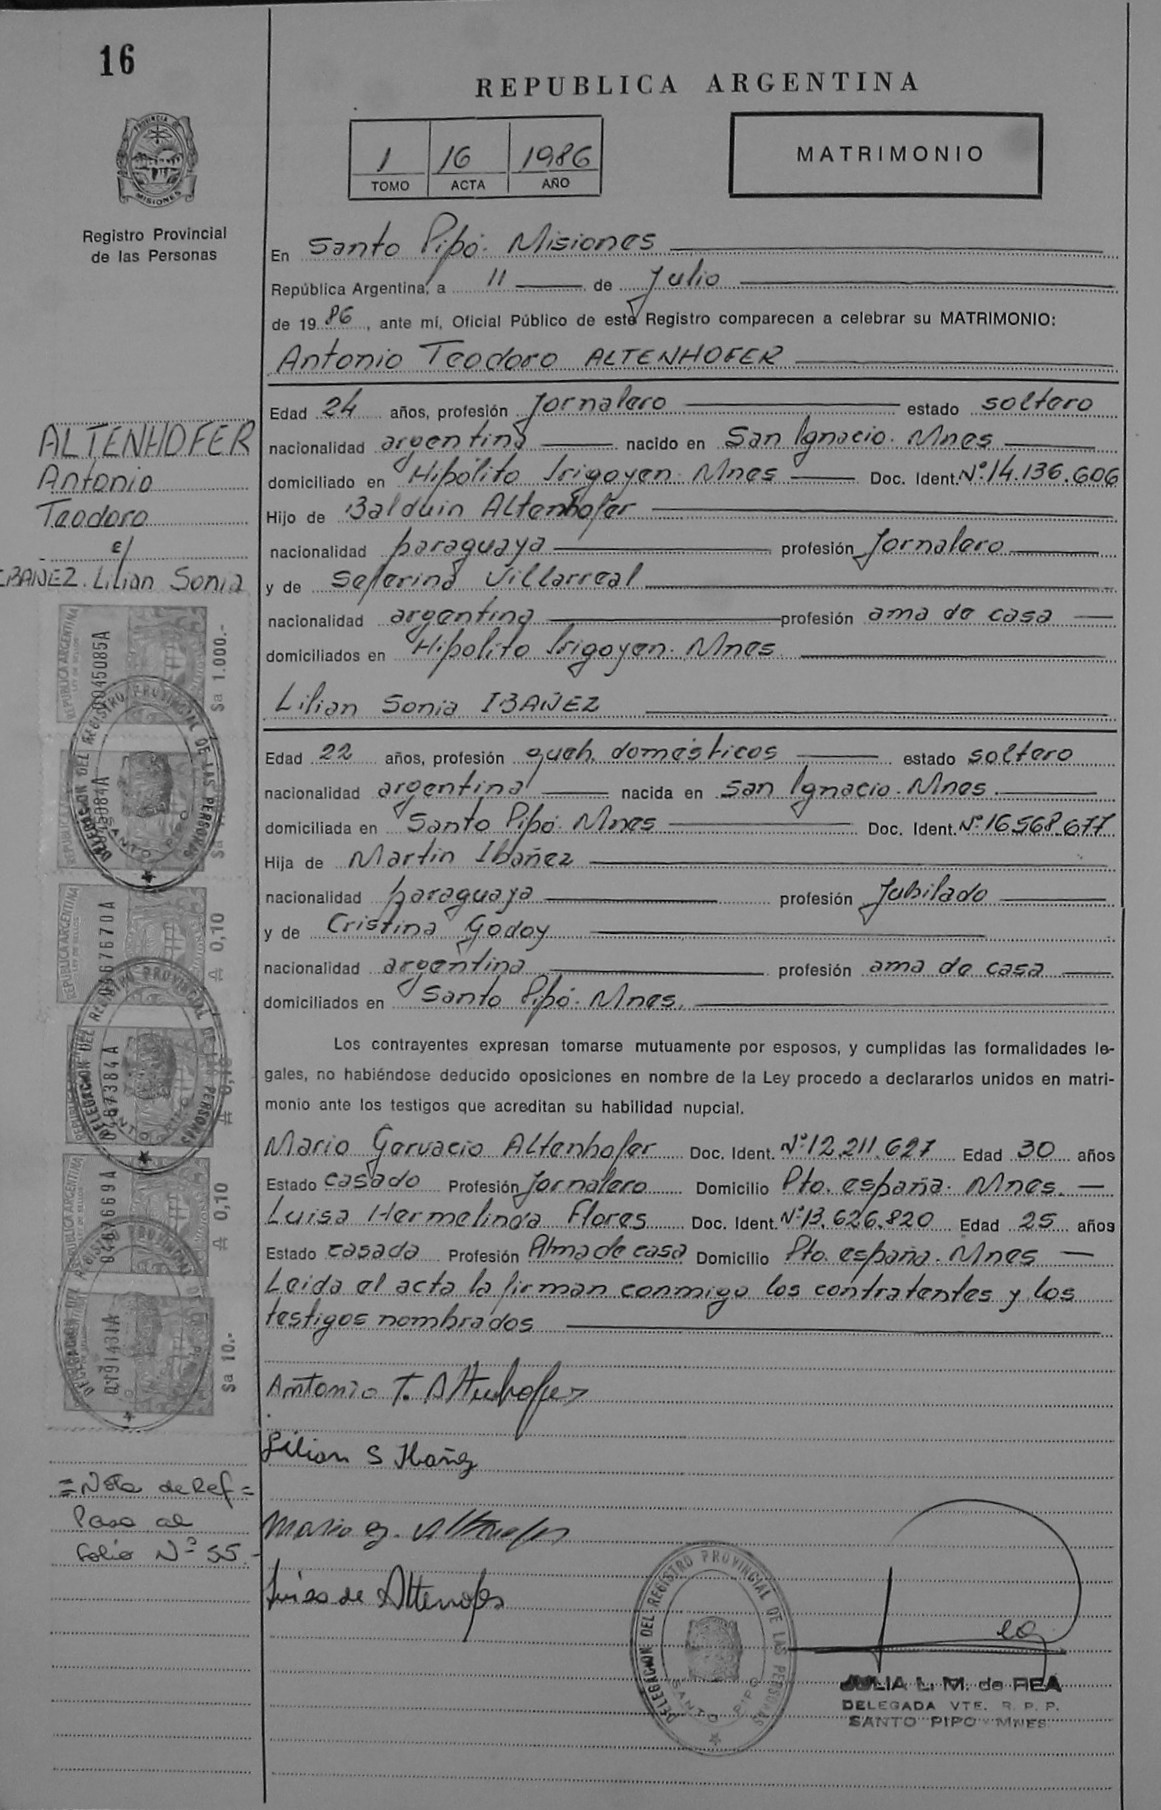 16
REPUBLICA ARGENTINA
1 16 1986
TOMO ACTA AÑO
MATRIMONIO
PROVINCIA DE MISIONES
Registro Provincial
de las Personas
En Santo Pipó. Misiones
República Argentina, a 11 de Julio
de 19 86, ante mí, Oficial Público de este Registro comparecen a celebrar su MATRIMONIO:
Antonio Teodoro ALTENHOFER
Edad 24 años, profesión Jornalero estado soltero
nacionalidad argentina nacido en San Ignacio. Mnes
domiciliado en Hipólito Irigoyen. Mnes Doc. Ident. Nº 14.136.606
Hijo de Balduin Altenhofer
nacionalidad paraguaya profesión Jornalero
y de Seferina Villarreal
nacionalidad argentina profesión ama de casa
domiciliados en Hipolito Irigoyen. Mnes
Lilian Sonia IBAÑEZ
Edad 22 años, profesión queh. domésticos estado soltero
nacionalidad argentina nacida en San Ignacio. Mnes
domiciliada en Santo Pipó. Mnes Doc. Ident. Nº 16.568.677
Hija de Martin Ibañez
nacionalidad paraguaya profesión Jubilado
y de Cristina Godoy
nacionalidad argentina profesión ama de casa
domiciliados en Santo Pipó. Mnes.
Los contrayentes expresan tomarse mutuamente por esposos, y cumplidas las formalidades le-
gales, no habiéndose deducido oposiciones en nombre de la Ley procedo a declararlos unidos en matri-
monio ante los testigos que acreditan su habilidad nupcial.
Mario Gervacio Altenhofer Doc. Ident. Nº 12.211.627 Edad 30 años
Estado casado Profesión Jornalero Domicilio Pto. españa. Mnes.
Luisa Hermelinda Flores Doc. Ident. Nº 13.626.820 Edad 25 años
Estado casada Profesión Ama de casa Domicilio Pto. españa. Mnes
Leida el acta la firman conmigo los contratentes y los
testigos nombrados
Antonio T. Altenhofer
Lilian S Ibañez
Mario G. Altenhofer
Luisa de Altenofer
DELEGACION DEL REGISTRO PROVINCIAL DE LAS PERSONAS
SANTO PIPO
JULIA L. M. de REA
DELEGADA VTE. R. P. P.
SANTO PIPO - MNES
ALTENHOFER
Antonio
Teodoro
c/
IBANEZ. Lilian Sonia
REPUBLICA ARGENTINA
0045085A
$a 1.000.-
DELEGACION DEL REGISTRO PROVINCIAL DE LAS PERSONAS
SANTO PIPO
REPUBLICA ARGENTINA
₳ 0,10
DELEGACION DEL REGISTRO PROVINCIAL DE LAS PERSONAS
SANTO PIPO
REPUBLICA ARGENTINA
₳ 0,10
$a 10.-
= Nota de Ref =
Pasa al
folio Nº 55.-